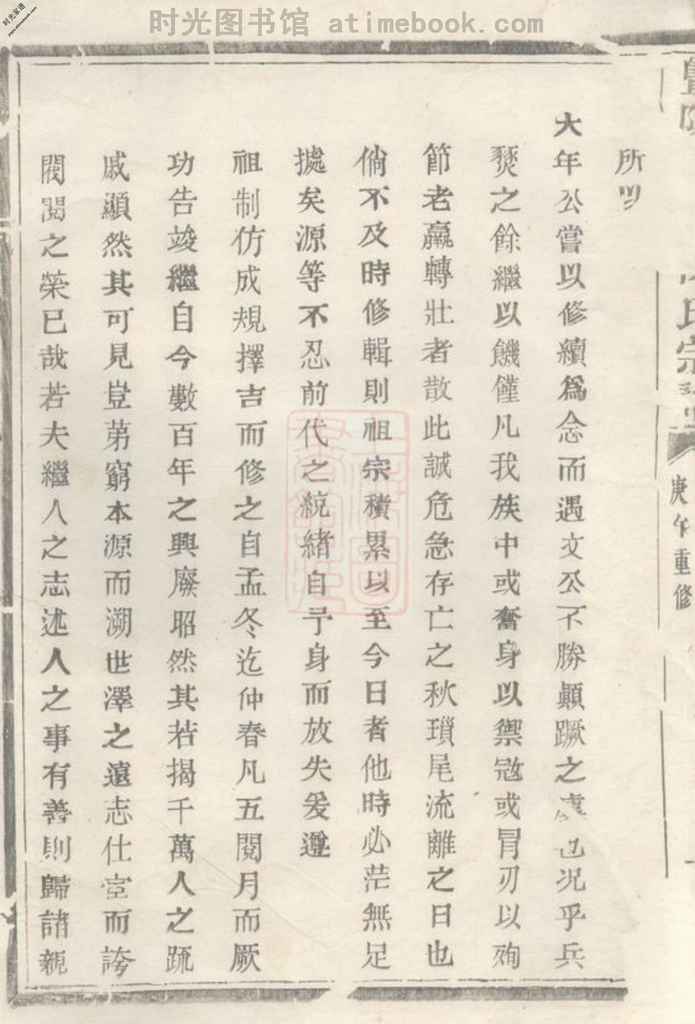 时光图书馆 atimebook.com
时光家谱
氏宗
庚午重修
所
大年公嘗以修續爲念而遇文公不勝顛蹶之也況乎兵
燹之餘繼以饑僅凡我族中或奮身以禦冦或冒刃以殉
節老羸轉壯者散此誠危急存亡之秋瑣尾流離之日也
倘不及時修輯則祖宗積累以至今日者他時必茫無足
㨿矣源等不忍前代之統緒自予身而放失爰遵
祖制仿成規擇吉而修之自孟冬迄仲春凡五閱月而厥
功告竣繼自今數百年之興廢昭然其若揭千萬人之䟽
戚顯然其可見豈苐窮本源而溯世澤之遠志仕宦而誇
閥閱之榮已哉若夫繼人之志述人之事有善則歸諸親